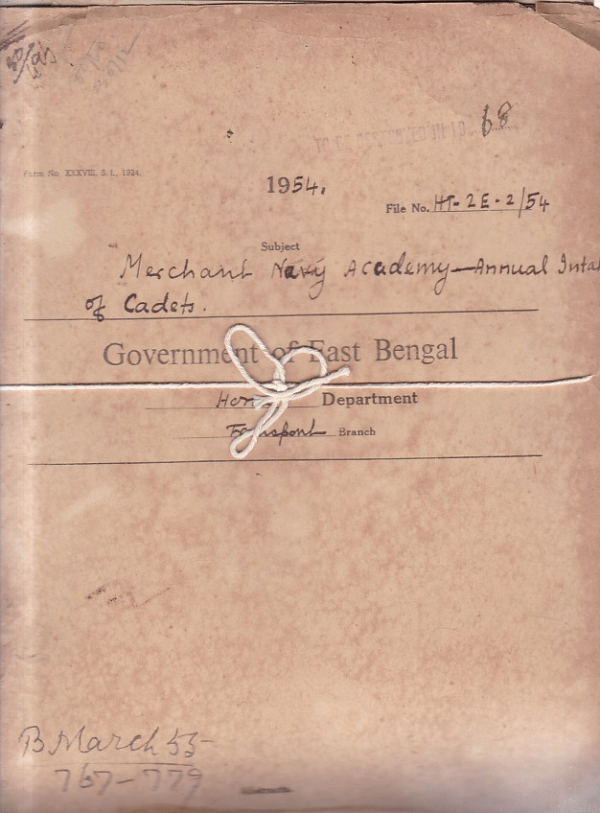 68
Form No. XXXVIII, S. I., 1924.
1954.
File No. HT-2E-2/54
Subject
Merchant Navy Academy—Annual Inta
of Cadets.
Government of East Bengal
Home Department
Transport Branch
B March 55
767-779